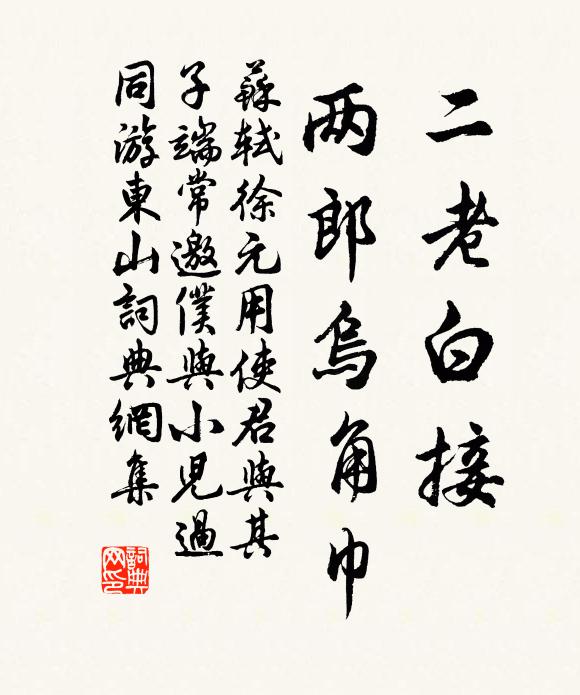 二老白接
两郎烏角巾
蘇軾徐元用使君與其
子端常邀僕與小兒過
同游東山詞典網集
詞典網印